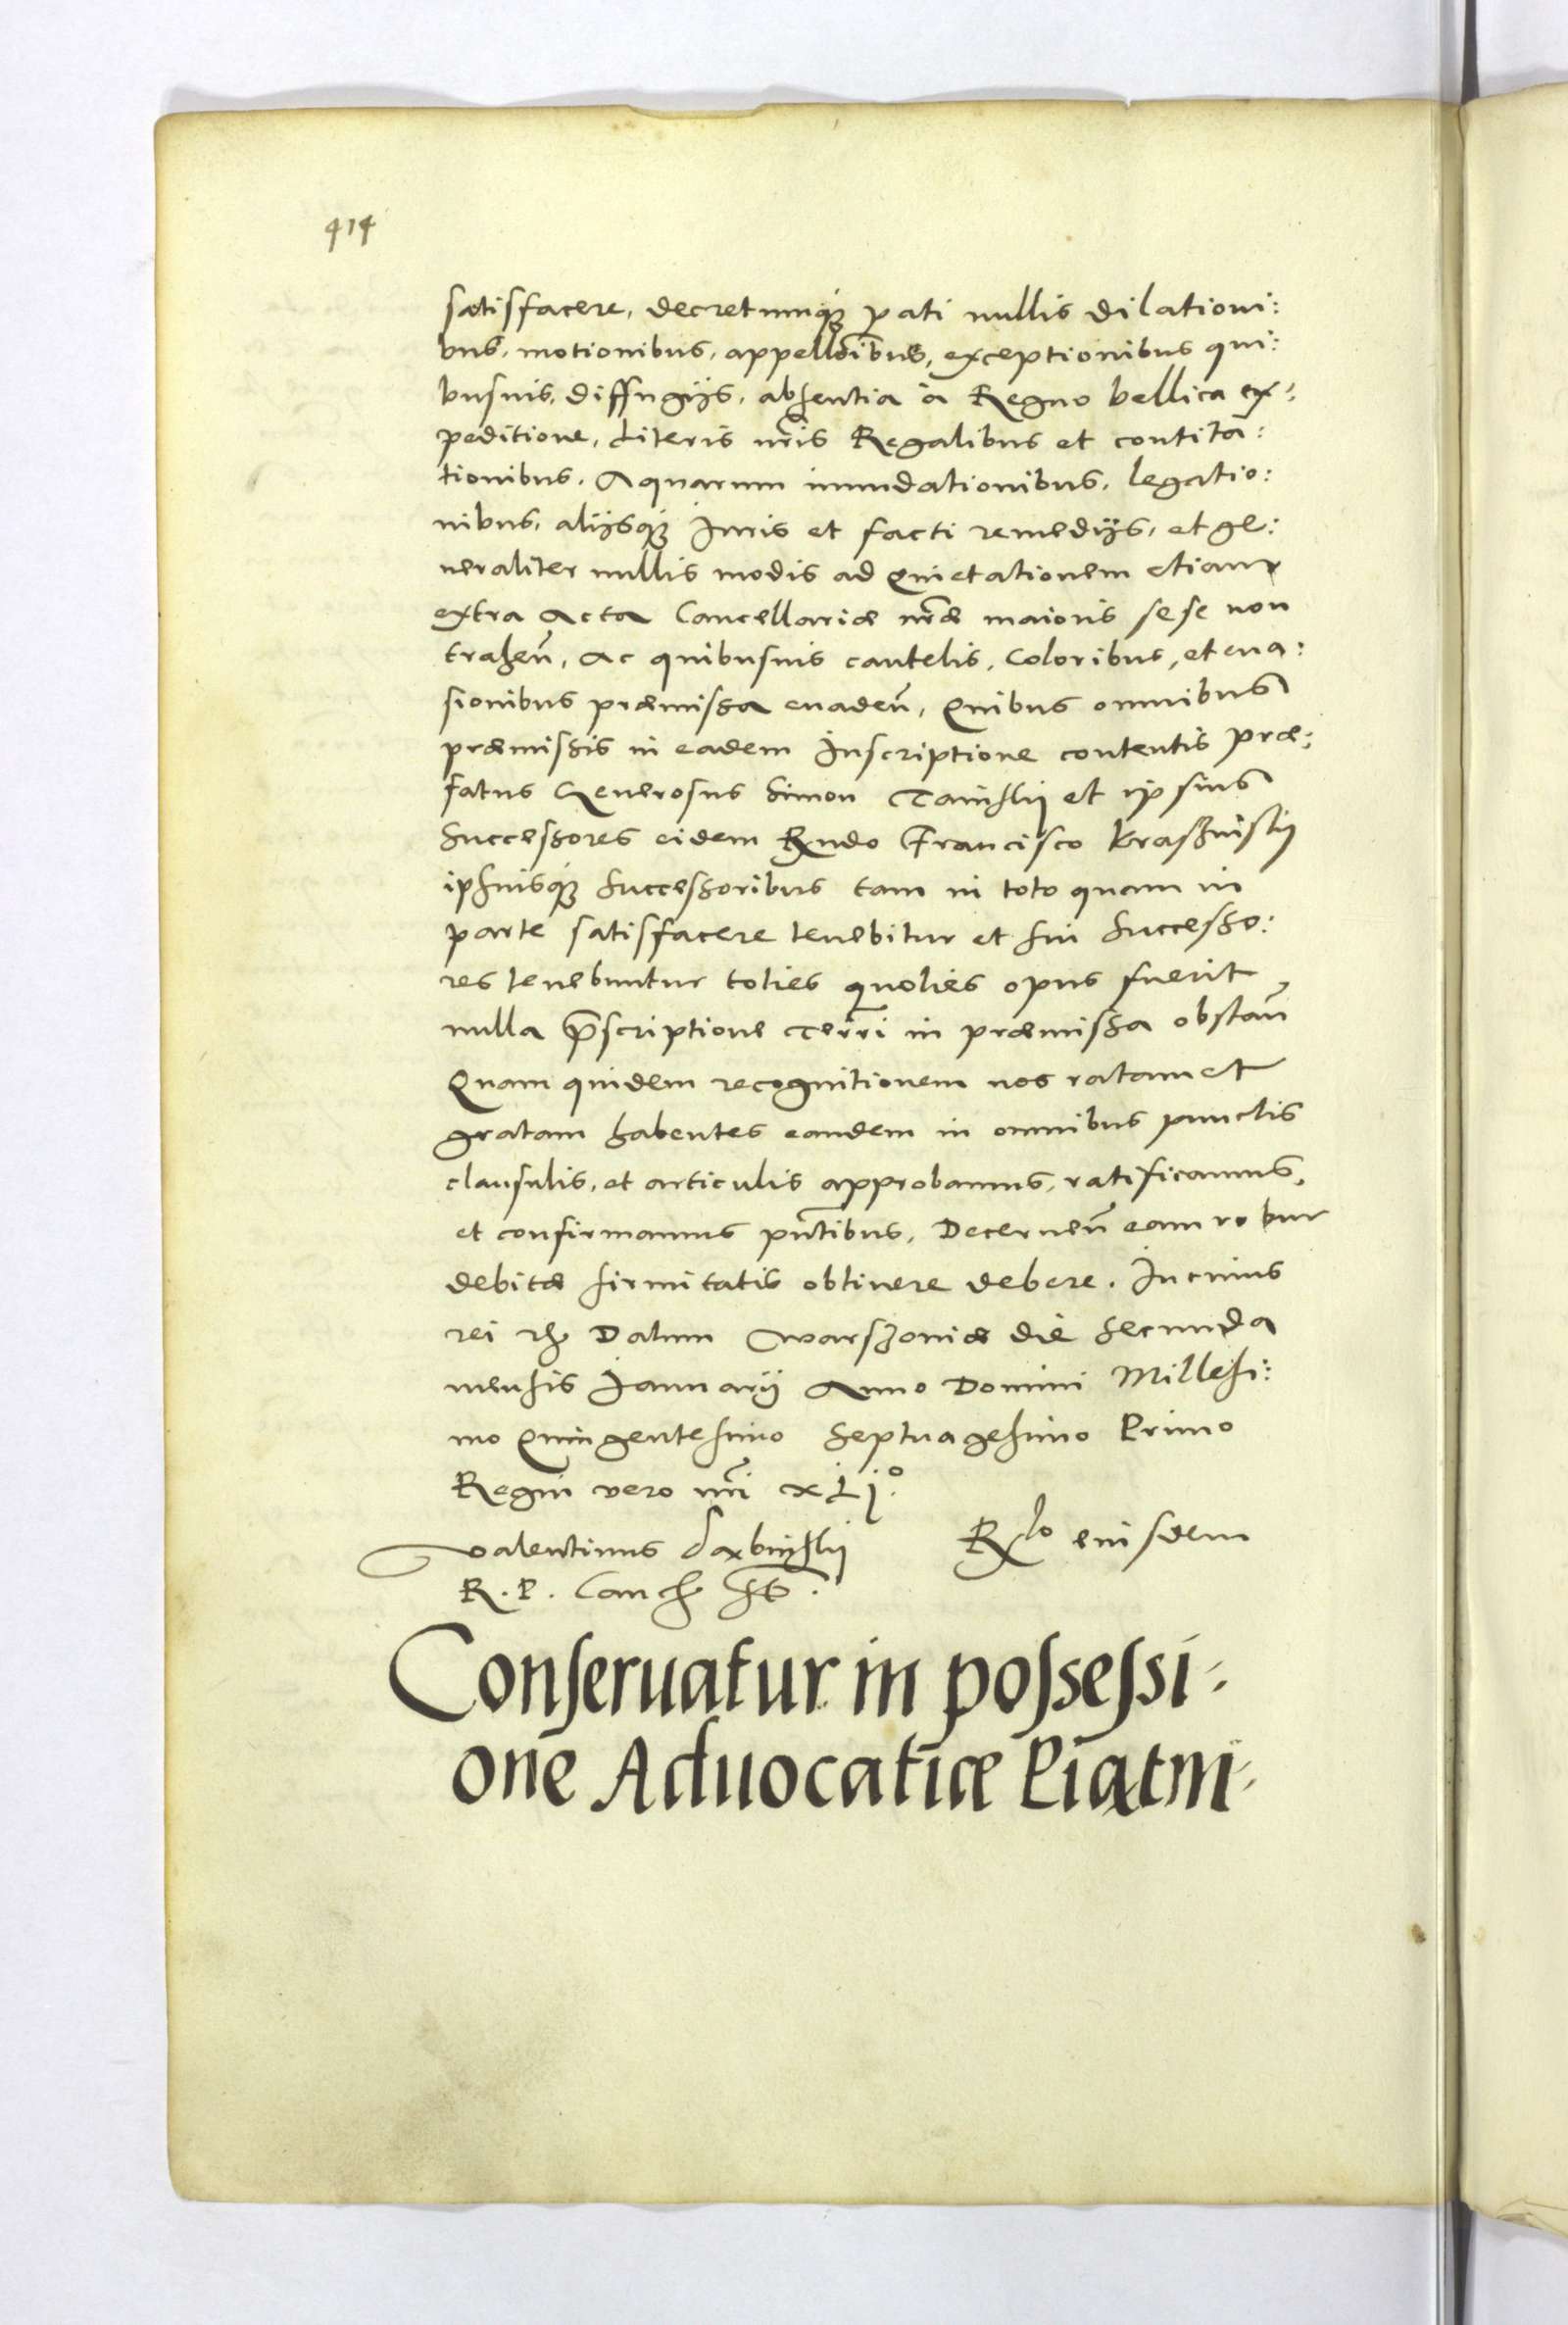 414
satisfacere, decretumq̃ꝫ pati nullis dilationi:
bus, motionibus, appellõibus, exceptionibus qui:
busuis, diffugijs, absentia à Regno bellica ex:
peditione, Literis nr̃is Regalibus et contita:
tionibus, Aquarum inundationibus, legatio:
nibus, alijsqꝫ Iuris et facti remedijs, et ge:
neraliter nullis modis ad quietationem etiam
extra Acta Cancellariæ nr̃æ maioris sese non
trahen̄, ac quibusuis cautelis, coloribus, et eua:
sionibus præmissa euaden̄, Quibus omnibus
præmissis in eadem Inscriptione contentis præ:
fatus Generosus Simon et ipsius
Successores eidem Rndo Francisco Krassinskij
ipsiusqꝫ Successoribus tam in toto quam in
parte satisfacere tenebitur et sui Successo:
res tenebuntur toties quoties opus fuerit
nulla p̄scriptione Terr̄i in præmissa obstan̄
Quam quidem recognitionem nos ratam et
gratam habentes eandem in omnibus punctis
clausulis, et articulis approbamus, ratificamus,
et confirmamus pn̄tibus, Decernen̄ eam robur
debitæ firmitatis obtinere debere. In cuius
rei rꝫ Datum Warszouiæ die Secunda
mensis Ianuarij Anno Domini Millesi:
mo Quingentesimo Septuagesimo Primo
Regni vero nr̃i xLj.º
Valentinus Daxbinskij Rlo eiusdem
R. P. Canc
Conseruatur in possessi-
one Aduocatiæ Piątni-